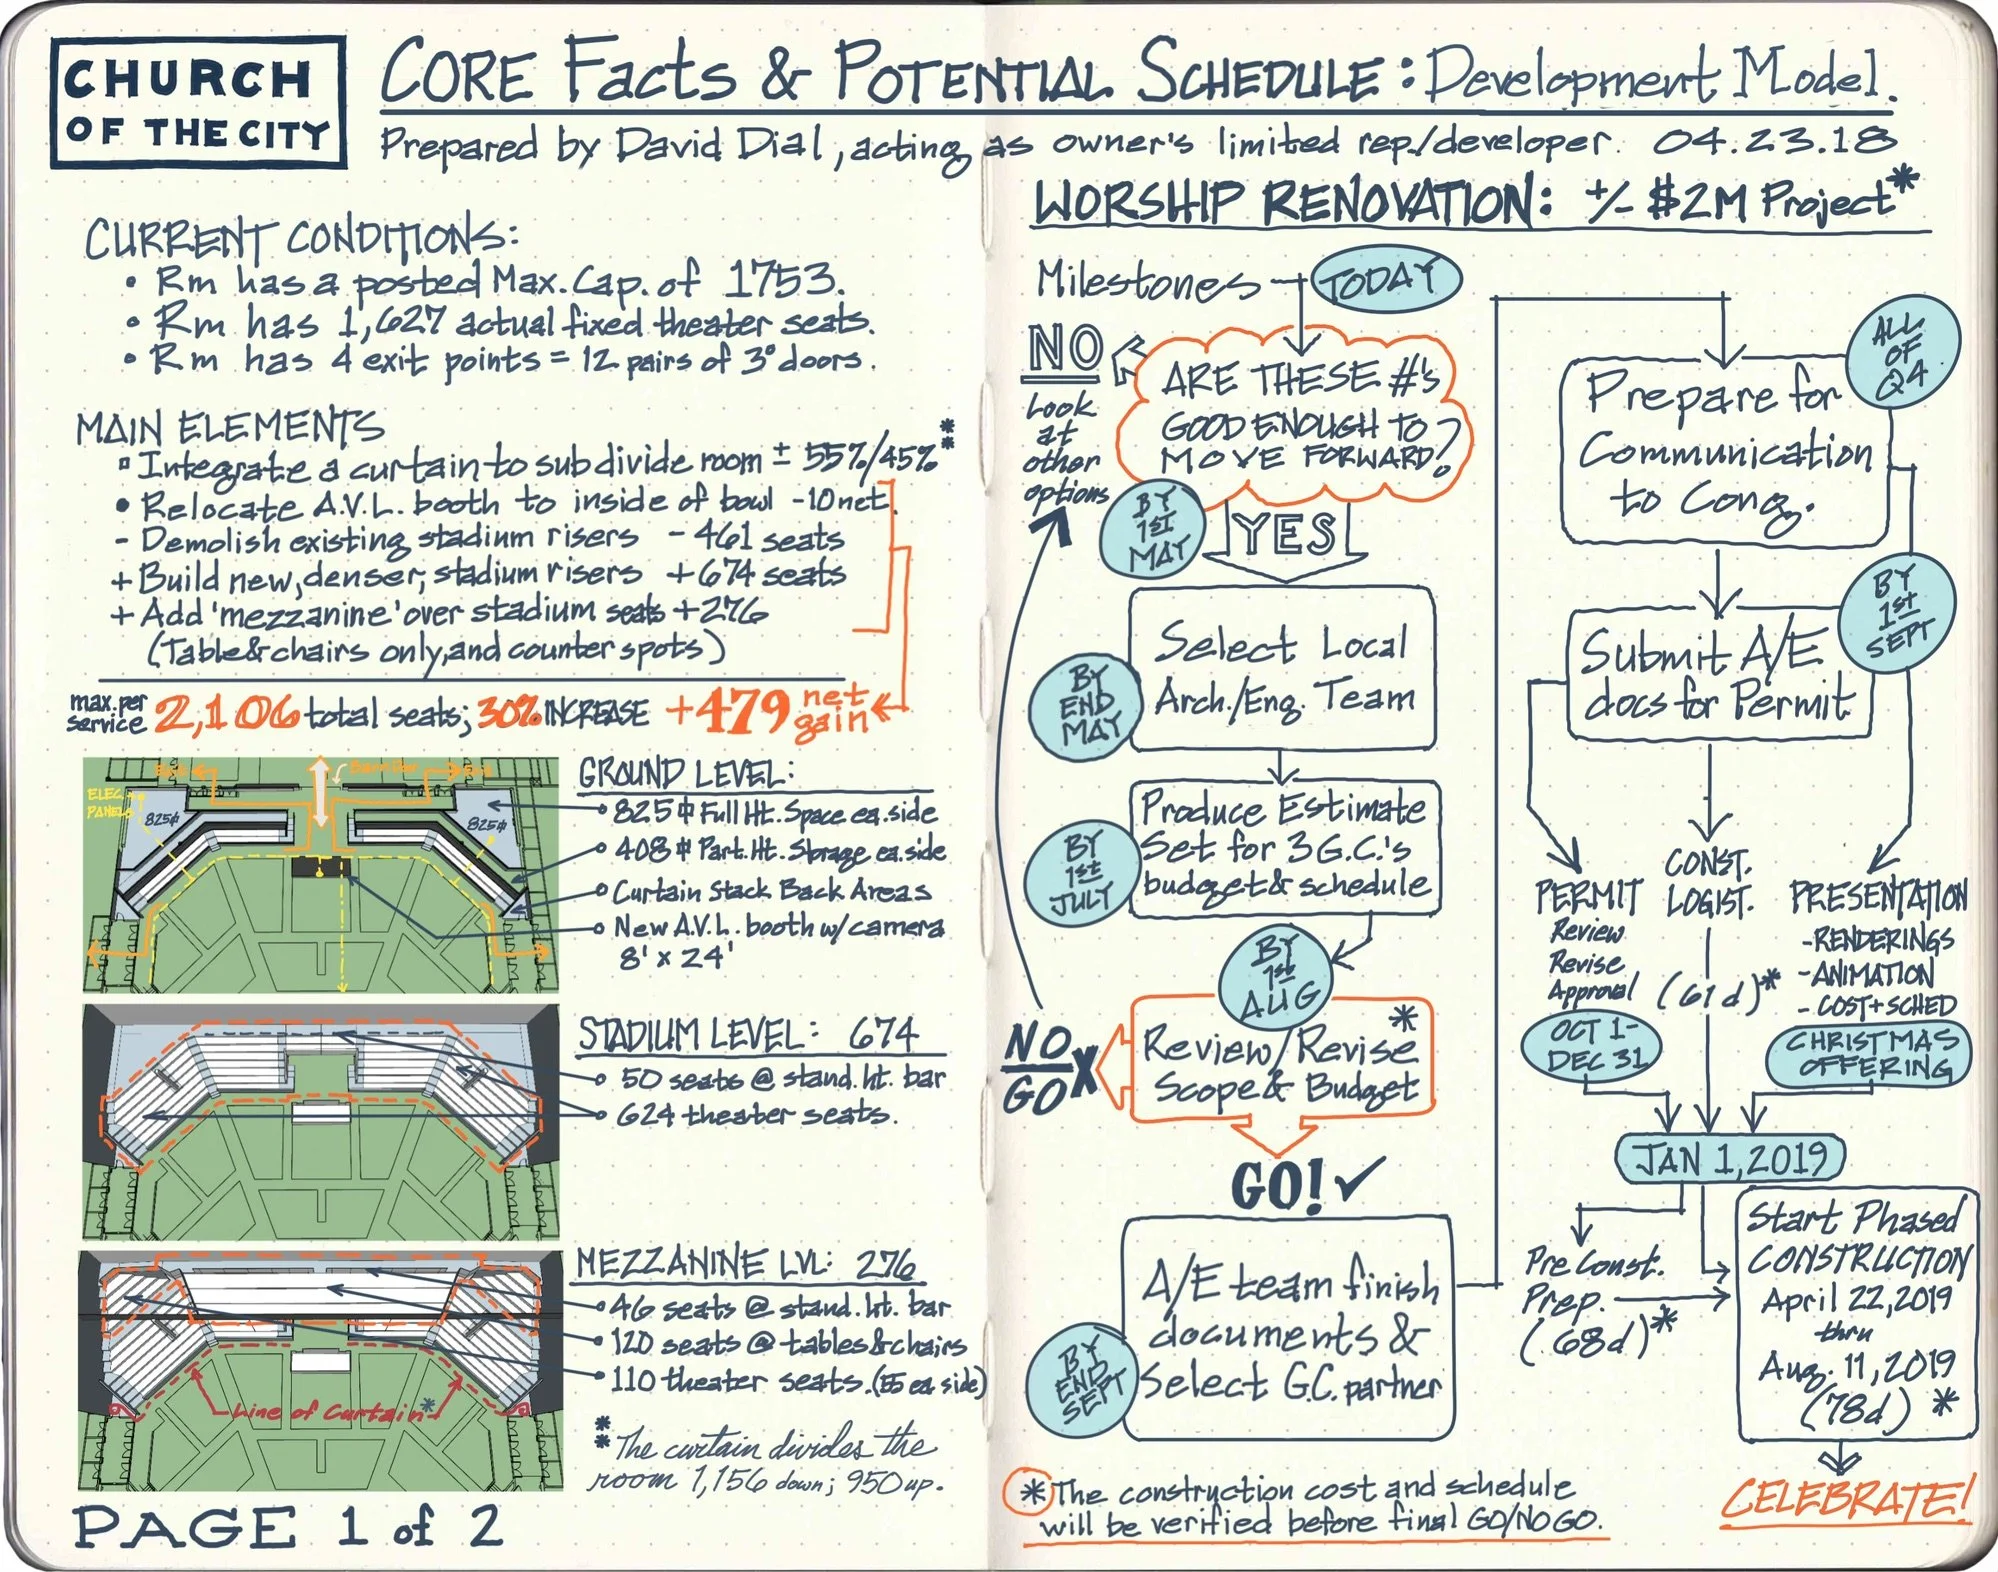 CHURCH
OF THE CITY
CORE Facts & POTENTIAL SCHEDULE: Development Model.
Prepared by David Dial, acting as owner's limited rep./developer. 04.23.18
CURRENT CONDITIONS:
• Rm has a posted Max. Cap. of 1753.
• Rm has 1,627 actual fixed theater seats.
• Rm has 4 exit points = 12 pairs of 3° doors.
MAIN ELEMENTS
▫ Integrate a curtain to subdivide room ± 55%/45% **
• Relocate A.V.L. booth to inside of bowl -10 net.
- Demolish existing stadium risers - 461 seats
+ Build new, denser, stadium risers + 674 seats
+ Add 'mezzanine' over stadium seats + 276
(Table & chairs only, and counter spots)
max. per
service 2,106 total seats; 30% INCREASE +479 net
gain
Exit Barrier Exit
ELEC.
PANELS
825⌀ 825⌀
GROUND LEVEL:
825⌀ Full Ht. Space ea. side
408⌀ Part. Ht. Storage ea. side
Curtain Stack Back Areas
New A.V.L. booth w/ camera
8' x 24'
STADIUM LEVEL: 674
50 seats @ stand. ht. bar
624 theater seats.
MEZZANINE LVL: 276
46 seats @ stand. ht. bar
120 seats @ tables & chairs
110 theater seats. (55 ea side)
Line of Curtain *
** The curtain divides the
room 1,156 down; 950 up.
PAGE 1 of 2
WORSHIP RENOVATION: +/- $2M Project *
Milestones
TODAY
NO
Look
at
other
options
ARE THESE #'s
GOOD ENOUGH TO
MOVE FORWARD?
BY
1st
MAY
YES
Select Local
Arch./Eng. Team
BY
END
MAY
Produce Estimate
Set for 3 G.C.'s
budget & schedule
BY
1st
JULY
BY
1st
AUG
Review/Revise *
Scope & Budget
NO
GO X
GO! ✓
A/E team finish
documents &
Select G.C. partner
BY
END
SEPT
* The construction cost and schedule
will be verified before final GO/NO GO.
ALL
OF
Q4
Prepare for
Communication
to Cong.
BY
1st
SEPT
Submit A/E
docs for Permit
PERMIT
Review
Revise
Approval
OCT 1-
DEC 31
CONST.
LOGIST.
(61d) *
PRESENTATION
- RENDERINGS
- ANIMATION
- COST + SCHED
CHRISTMAS
OFFERING
JAN 1, 2019
Pre Const.
Prep.
(68d) *
Start Phased
CONSTRUCTION
April 22, 2019
thru
Aug. 11, 2019
(78d) *
CELEBRATE!